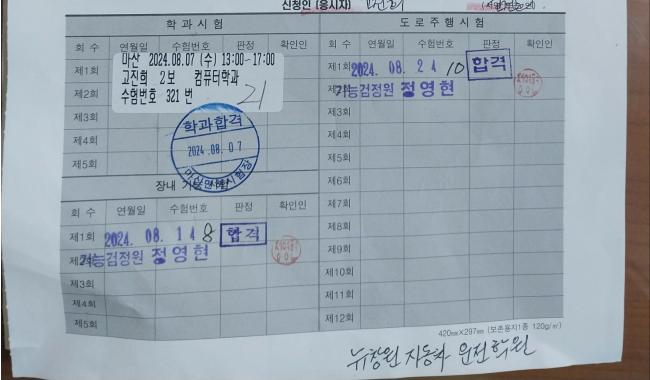 신청인 (응시자)
학 과 시 험
회 수 연월일 수험번호 판정 확인인
제1회
제2회
제3회
제4회
제5회
마산 2024.08.07 (수) 13:00-17:00
고진혁 2보 컴퓨터학과
수험번호 321 번
21
학과합격
2024.08.07
장내 기능시험
회 수 연월일 수험번호 판정 확인인
제1회 2024. 08. 14 8 합격
기능검정원 정영현
제3회
제4회
제5회
도 로 주 행 시 험
회 수 연월일 수험번호 판정 확인인
제1회 2024. 08. 24 10 합격
기능검정원 정영현
제3회
제4회
제5회
제6회
제7회
제8회
제9회
제10회
제11회
제12회
420㎜×297㎜ (보존용지1종 120g/㎡)
뉴창원 자동차 운전학원